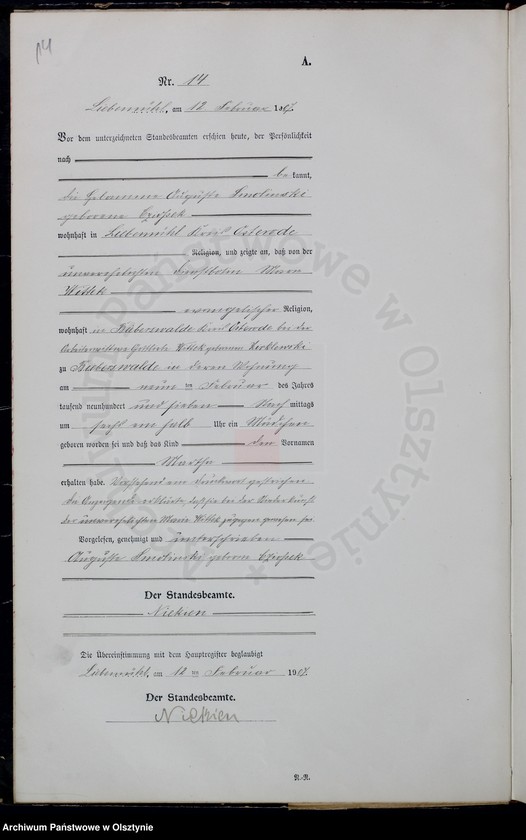 14
A.
Nr. 14
Liebemühl, am 12 Februar 1907.
Vor dem unterzeichneten Standesbeamten erschien heute, der Persönlichkeit
nach
bekannt,
die Hebamme Auguste Smolinski
geborene
wohnhaft in Liebemühl Kreis Osterode
Religion, und zeigte an, daß von der
unverehelichten Dienstboten Marie
Wittek
evangelischer Religion,
wohnhaft in Bieberswalde Kreis Osterode bei der
Arbeiterwittwe Wittek geborenen
zu Bieberswalde in deren Wohnung
am neun ten Februar des Jahres
tausend neunhundert und sieben Nach mittags
um sechs ein halb Uhr ein Mädchen
geboren worden sei und daß das Kind den Vornamen
Martha
erhalten habe. Vorstehend ein Druckwort gestrichen
Die Anzeigende erklärte, daß sie bei der Niederkunft
der unverehelichten Marie Wittek zugegen gewesen sei.
Vorgelesen, genehmigt und unterschrieben
Auguste Smolinski geborene
Der Standesbeamte.
Die Übereinstimmung mit dem Hauptregister beglaubigt
Liebemühl, am 12 ten Februar 1907.
Der Standesbeamte.
R.-R.
Archiwum Państwowe w Olsztynie
Archiwum Państwowe w Olsztynie